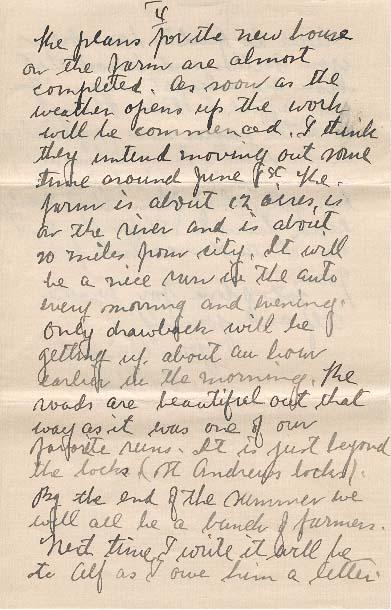 4
The plans for the new house
on the farm are almost
completed. As soon as the
weather opens up the work
will be commenced. I think
they intend moving out some
time around June 1st. The
farm is about 12 acres, is
on the river and is about
20 miles from city. It will
be a nice run in the auto
every morning and evening.
Only drawback will be
getting up about an hour
earlier in the morning. The
roads are beautiful out that
way as it was one of our
favorite runs. It is just beyond
the locks (St Andrews locks).
By the end of the summer we
will all be a bunch of farmers.
Next time I write it will be
to Alf as I owe him a letter.